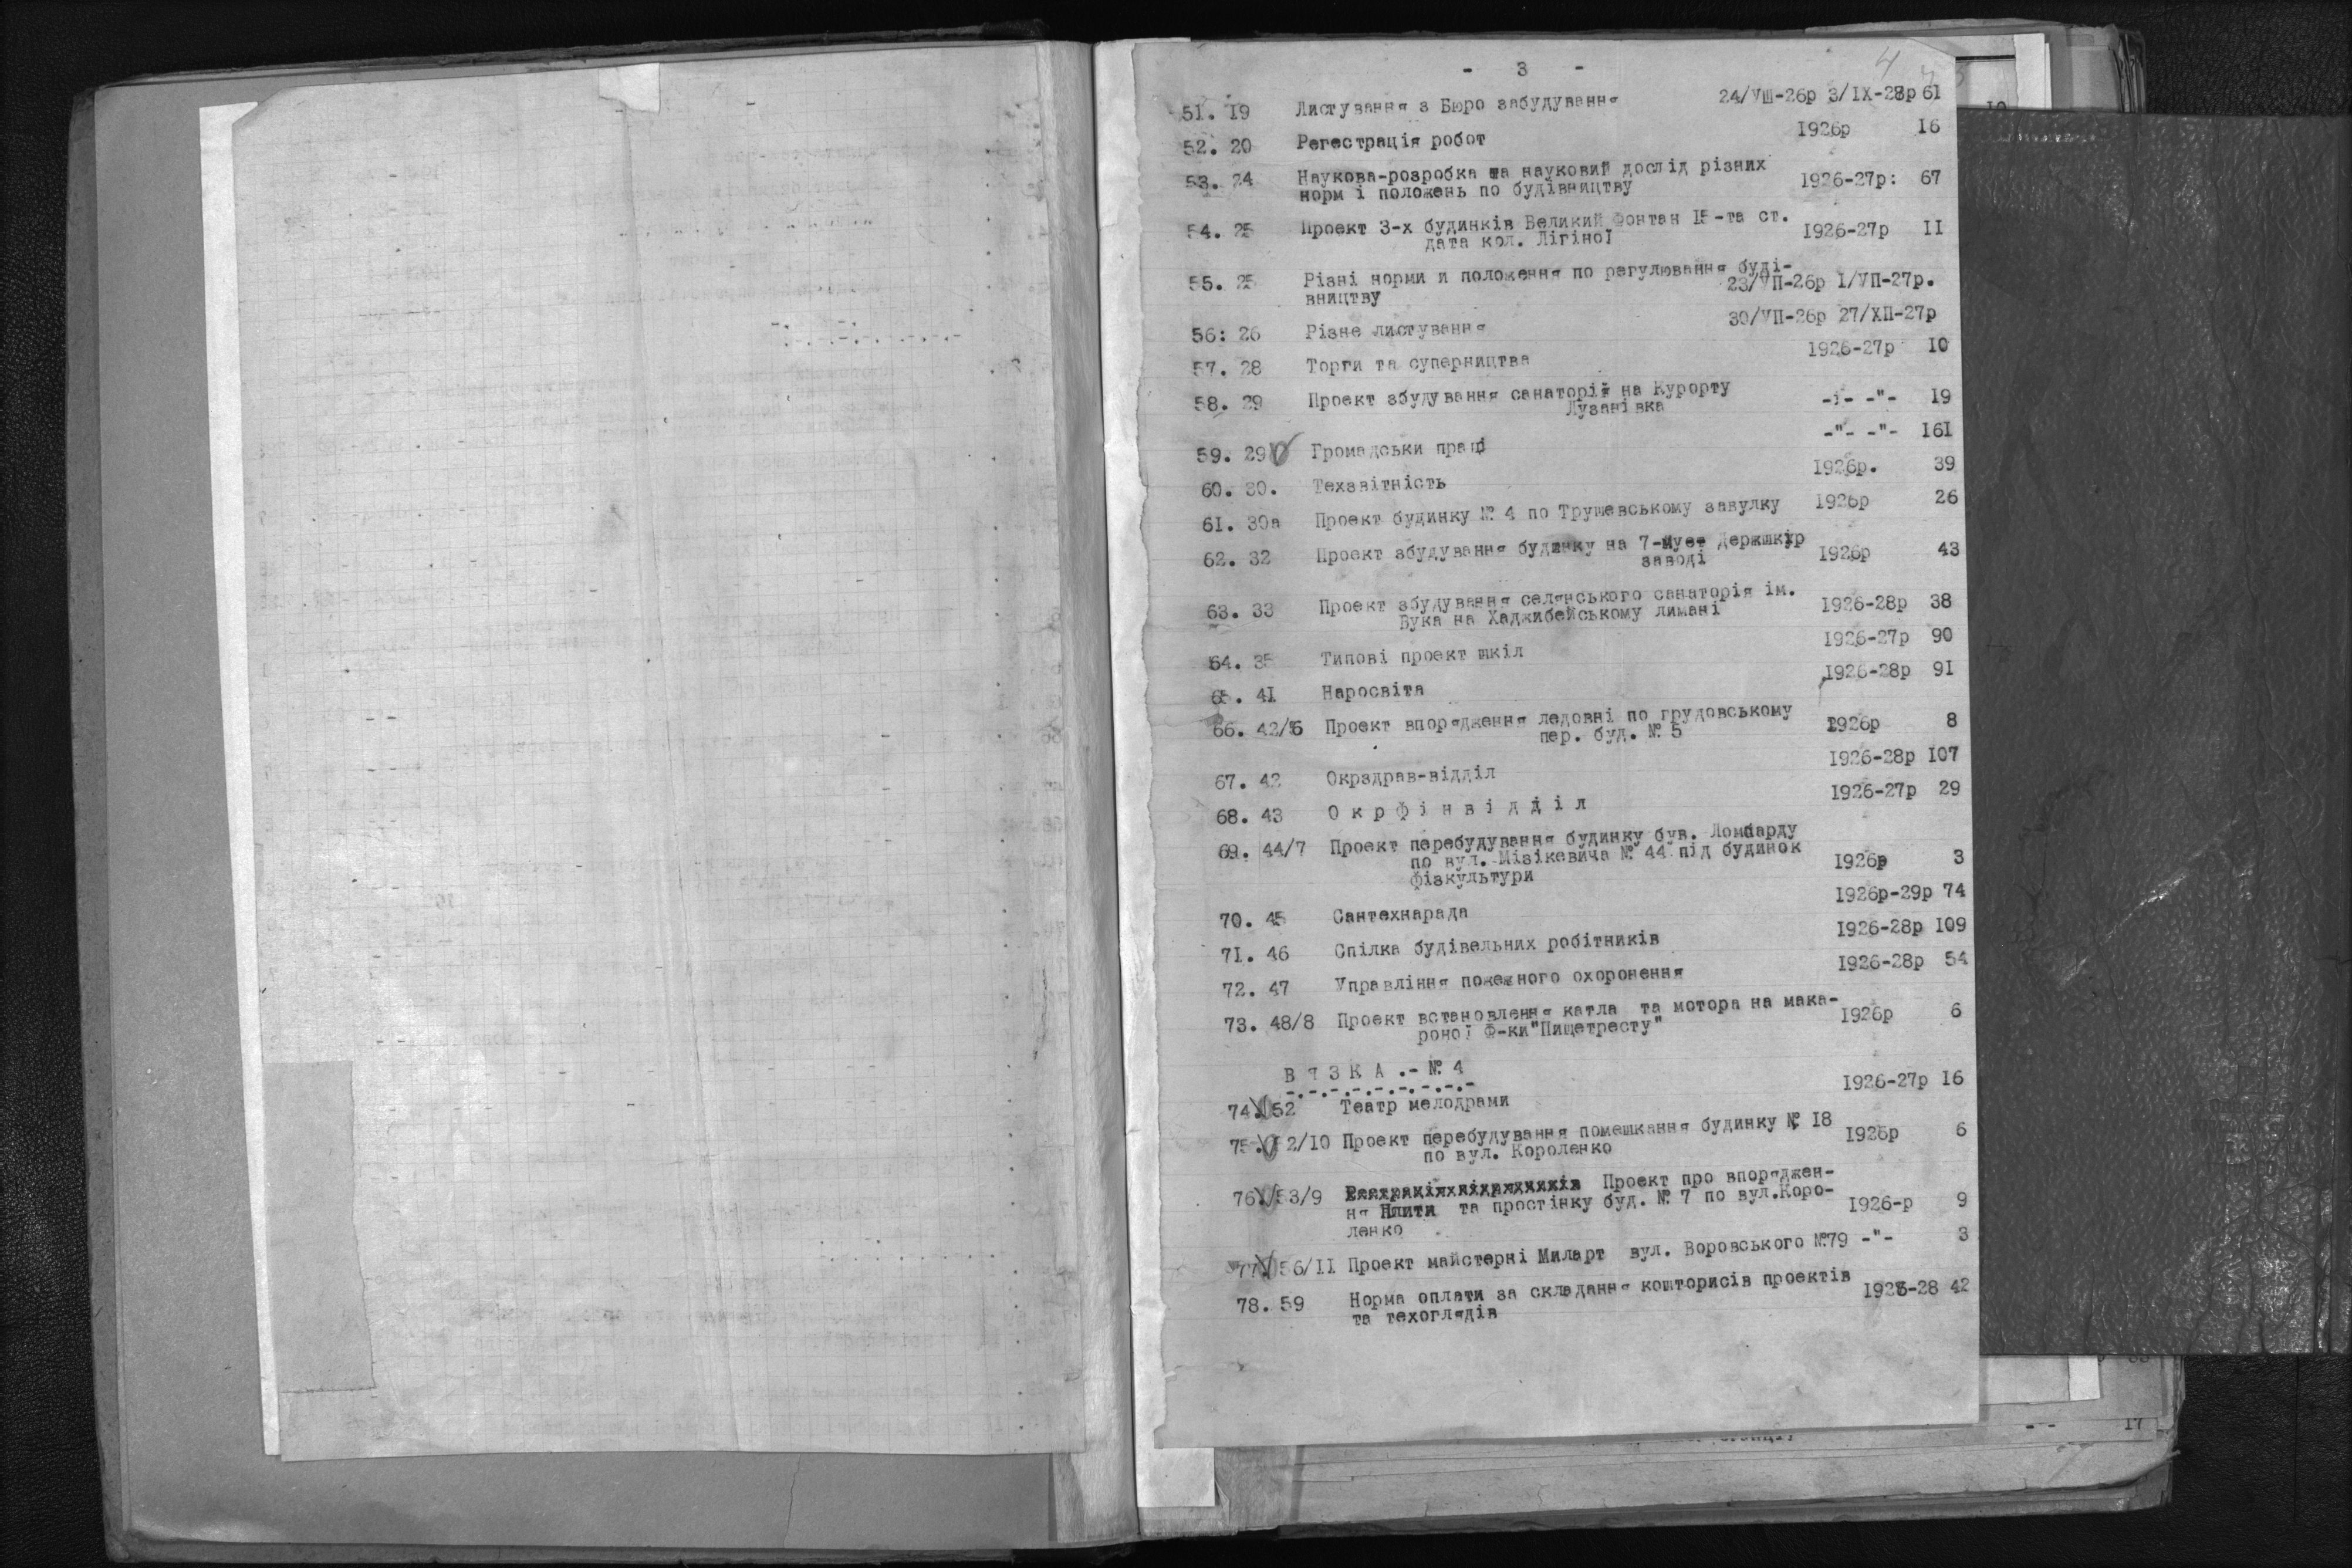 - 3 -
4
51. 19 Листування з Бюро забудування 24/УШ-26р 3/ІХ-28р 61
52. 20 Регестрація робот 1926р 16
53. 24 Наукова-розробка та науковий дослід різних
норм і положень по будівництву 1926-27р: 67
54. 25 Проект 3-х будинків Великий Фонтан 15-та ст.
дата кол. Лігіної 1926-27р 11
55. 25 Різні норми и положення по регулювання буді-
вництву 23/УП-26р 1/УП-27р.
56: 26 Різне листування 30/УП-26р 27/ХП-27р
57. 28 Торги та суперництва 1926-27р 10
58. 29 Проект збудування санаторій на Курорту
Лузанівка -"- -"- 19
59. 29 Громадськи праці -"- -"- 161
60. 30. Техзвітність 1926р. 39
61. 30а Проект будинку № 4 по Трушевському завулку 1926р 26
62. 32 Проект збудування будинку на 7-му Держшкір
заводі 1926р 43
63. 33 Проект збудування селянського санаторія ім.
Бука на Хаджибейському лимані 1926-28р 38
64. 35 Типові проект шкіл 1926-27р 90
65. 41 Наросвіта 1926-28р 91
66. 42/6 Проект впорядження ледовні по грудовському
пер. буд. № 5 1926р 8
67. 42 Окрздрав-відділ 1926-28р 107
68. 43 О к р ф і н в і д д і л 1926-27р 29
69. 44/7 Проект перебудування будинку був. Ломбарду
по вул. Мізікевича № 44 під будинок
фізкультури 1926р 3
70. 45 Сантехнарада 1926р-29р 74
71. 46 Спілка будівельних робітників 1926-28р 109
72. 47 Управління пожежного охоронення 1926-28р 54
73. 48/8 Проект встановлення катла та мотора на мака-
роної Ф-ки "Пищетресту" 1926р 6
В Я З К А .- № 4
-.-.-.-.-.-.-.-.-
74. 52 Театр мелодрами 1926-27р 16
75. 2/10 Проект перебудування помешкання будинку № 18
по вул. Короленко 1926р 6
76. 53/9 Проект про впоряджен-
ня Плити та простінку буд. № 7 по вул.Коро-
ленко 1926-р 9
77. 56/11 Проект майстерні Миларт вул. Воровського №79 -"- 3
78. 59 Норма оплати за складання кошторисів проектів
та техоглядів 1926-28 42
17